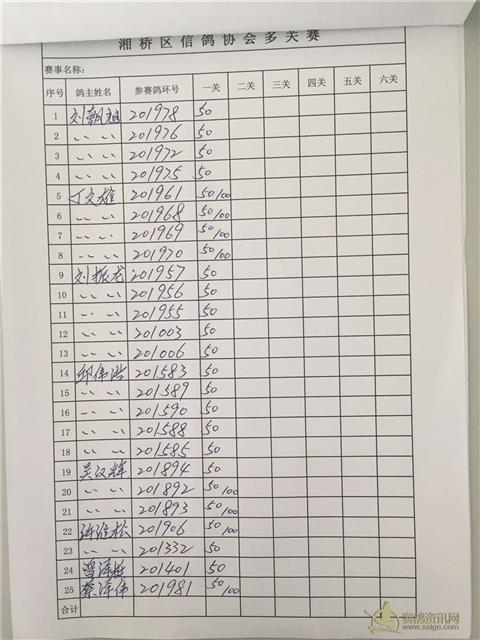 湘桥区信鸽协会多关赛
赛事名称:
序号 鸽主姓名 参赛鸽环号 一关 二关 三关 四关 五关 六关
1 刘 201978 50
2 〃 〃 201976 50
3 〃 〃 201972 50
4 〃 〃 201975 50
5 丁文雄 201961 50/100
6 〃 〃 201968 50/100
7 〃 〃 201969 50/100
8 〃 〃 201970 50/100
9 刘振龙 201957 50
10 〃 〃 201956 50
11 〃 〃 201955 50
12 〃 〃 201003 50
13 〃 〃 201006 50
14 邱伟浩 201583 50
15 〃 〃 201589 50
16 〃 〃 201590 50
17 〃 〃 201588 50
18 〃 〃 201585 50
19 吴汉辉 201894 50
20 〃 〃 201892 50/100
21 〃 〃 201893 50/100
22 松 201906 50/100
23 〃 〃 201332 50
24 曾 201401 50
25 蔡泽伟 201981 50/100
合计
赛鸽资讯网
www.saige.com